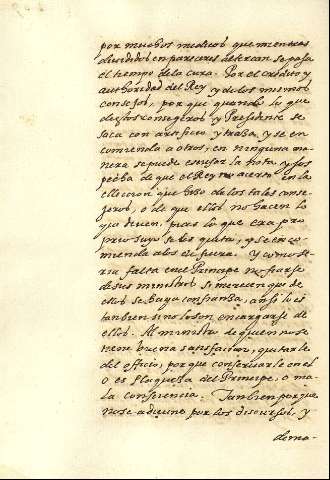 por muchos medicos que mientras
divididos en pareceres altercan se pasa
el tiempo de la cura. Por el credito y
authoridad del Rey y de los mismos
consejos, por que quando lo que
de los consegeros y Presidente se
saca con artificio y traba y se en
comienda a otros, en ninguna ma
nera se puede escusar la nota y sos
pecha de que el Rey no acierta en la
elleccion que hizo de los tales conse
jeros, o de que ellos no hacen lo
que deven, pues lo que era pro
prio suyo se les quita, y se enco
mienda a los de fuera. Y como se
ria falta en el Principe no fiarse
de sus ministros si merecen que de
ellos se haga confianza, ansi lo es
tanbien si no lo son encargarse de
ellos. Al ministro de quien no se
tiene buena satisfacion, quitarle
del officio, por que conservarle en el
o es flaqueza del Principe, o ma
la conciencia. Tanbien porque
no se adivine por los discursos, y
dema-